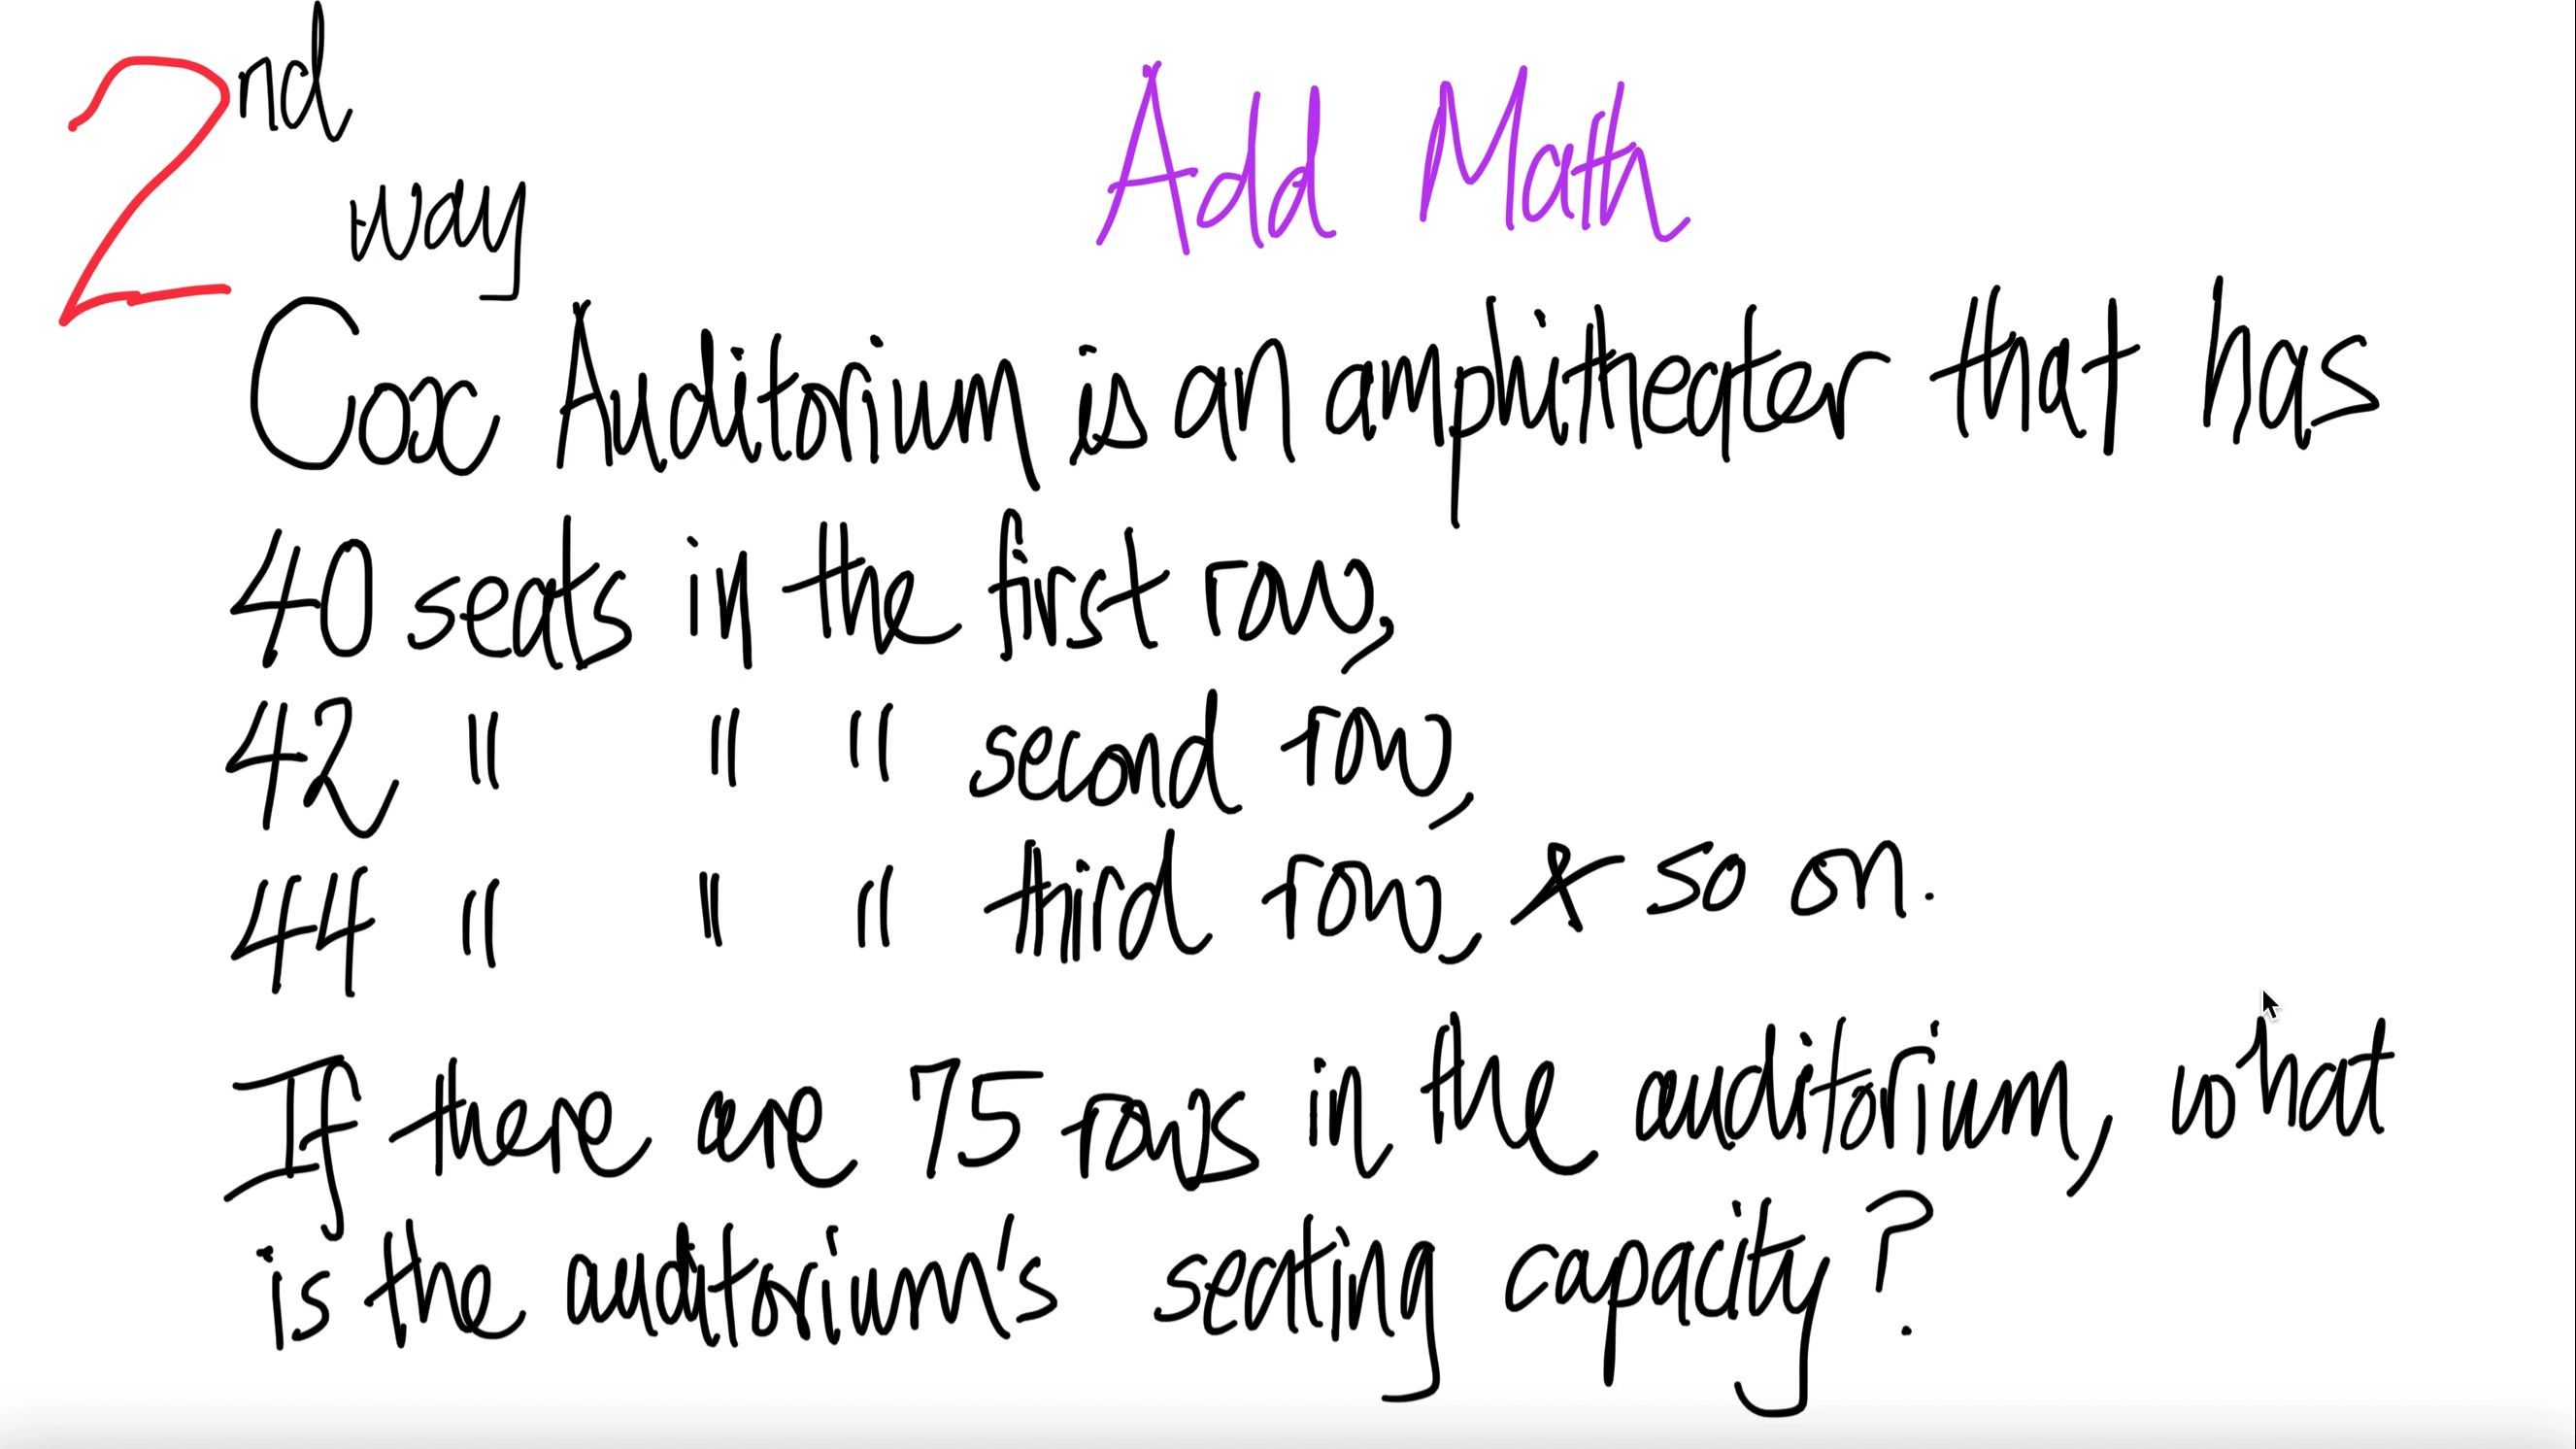 2nd
way
Add Math
Cox Auditorium is an amphitheater that has
40 seats in the first row,
42 " " " second row,
44 " " " third row, & so on.
If there are 75 rows in the auditorium, what
is the auditorium's seating capacity?